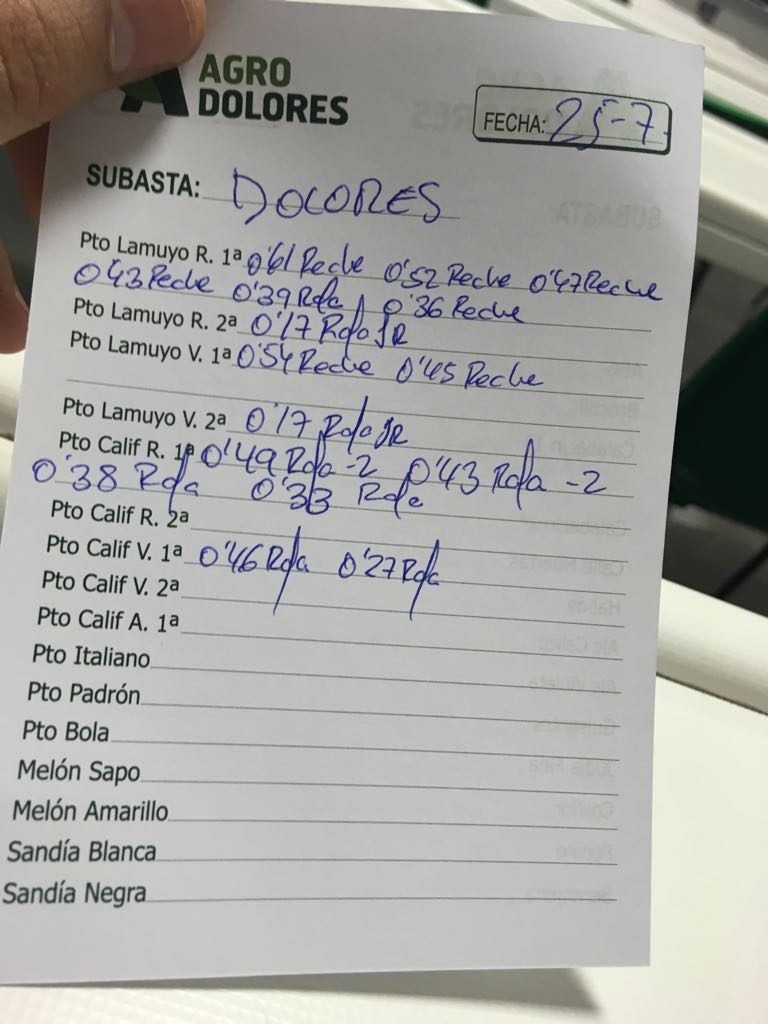 AGRO
DOLORES
FECHA: 25-7
SUBASTA: DOLORES
Pto Lamuyo R. 1ª 0'61 Reche 0'52 Reche 0'47 Reche
0'43 Reche 0'39 Rda 0'36 Reche
Pto Lamuyo R. 2ª 0'17 Rda JR
Pto Lamuyo V. 1ª 0'54 Reche 0'45 Reche
Pto Lamuyo V. 2ª 0'17 Rda JR
Pto Calif R. 1ª 0'49 Rda -2 0'43 Rda -2
0'38 Rda 0'33 Rda
Pto Calif R. 2ª
Pto Calif V. 1ª 0'46 Rda 0'27 Rda
Pto Calif V. 2ª
Pto Calif A. 1ª
Pto Italiano
Pto Padrón
Pto Bola
Melón Sapo
Melón Amarillo
Sandía Blanca
Sandía Negra